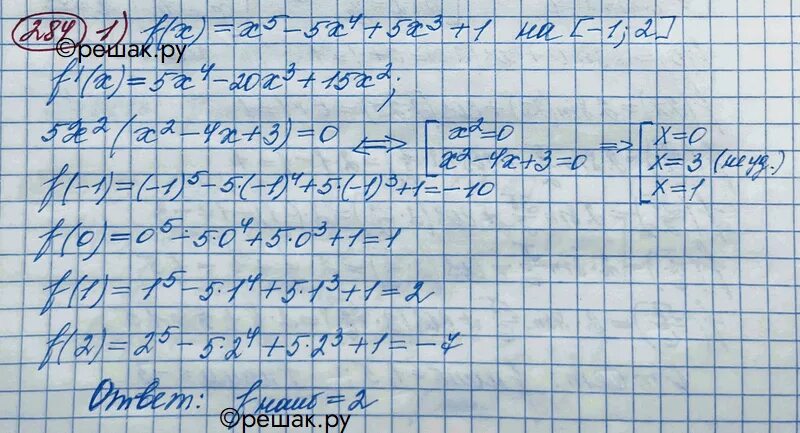 284 1) f(x) = x⁵ - 5x⁴ + 5x³ + 1 на [-1; 2]
©решак.ру
f'(x) = 5x⁴ - 20x³ + 15x²;
5x²(x² - 4x + 3) = 0 ⟺ [ x² = 0 ⟹ [ x = 0
x² - 4x + 3 = 0 x = 3 (не уд.)
x = 1
f(-1) = (-1)⁵ - 5·(-1)⁴ + 5·(-1)³ + 1 = -10
f(0) = 0⁵ - 5·0⁴ + 5·0³ + 1 = 1
f(1) = 1⁵ - 5·1⁴ + 5·1³ + 1 = 2
f(2) = 2⁵ - 5·2⁴ + 5·2³ + 1 = -7
Ответ: f наиб = 2
©решак.ру